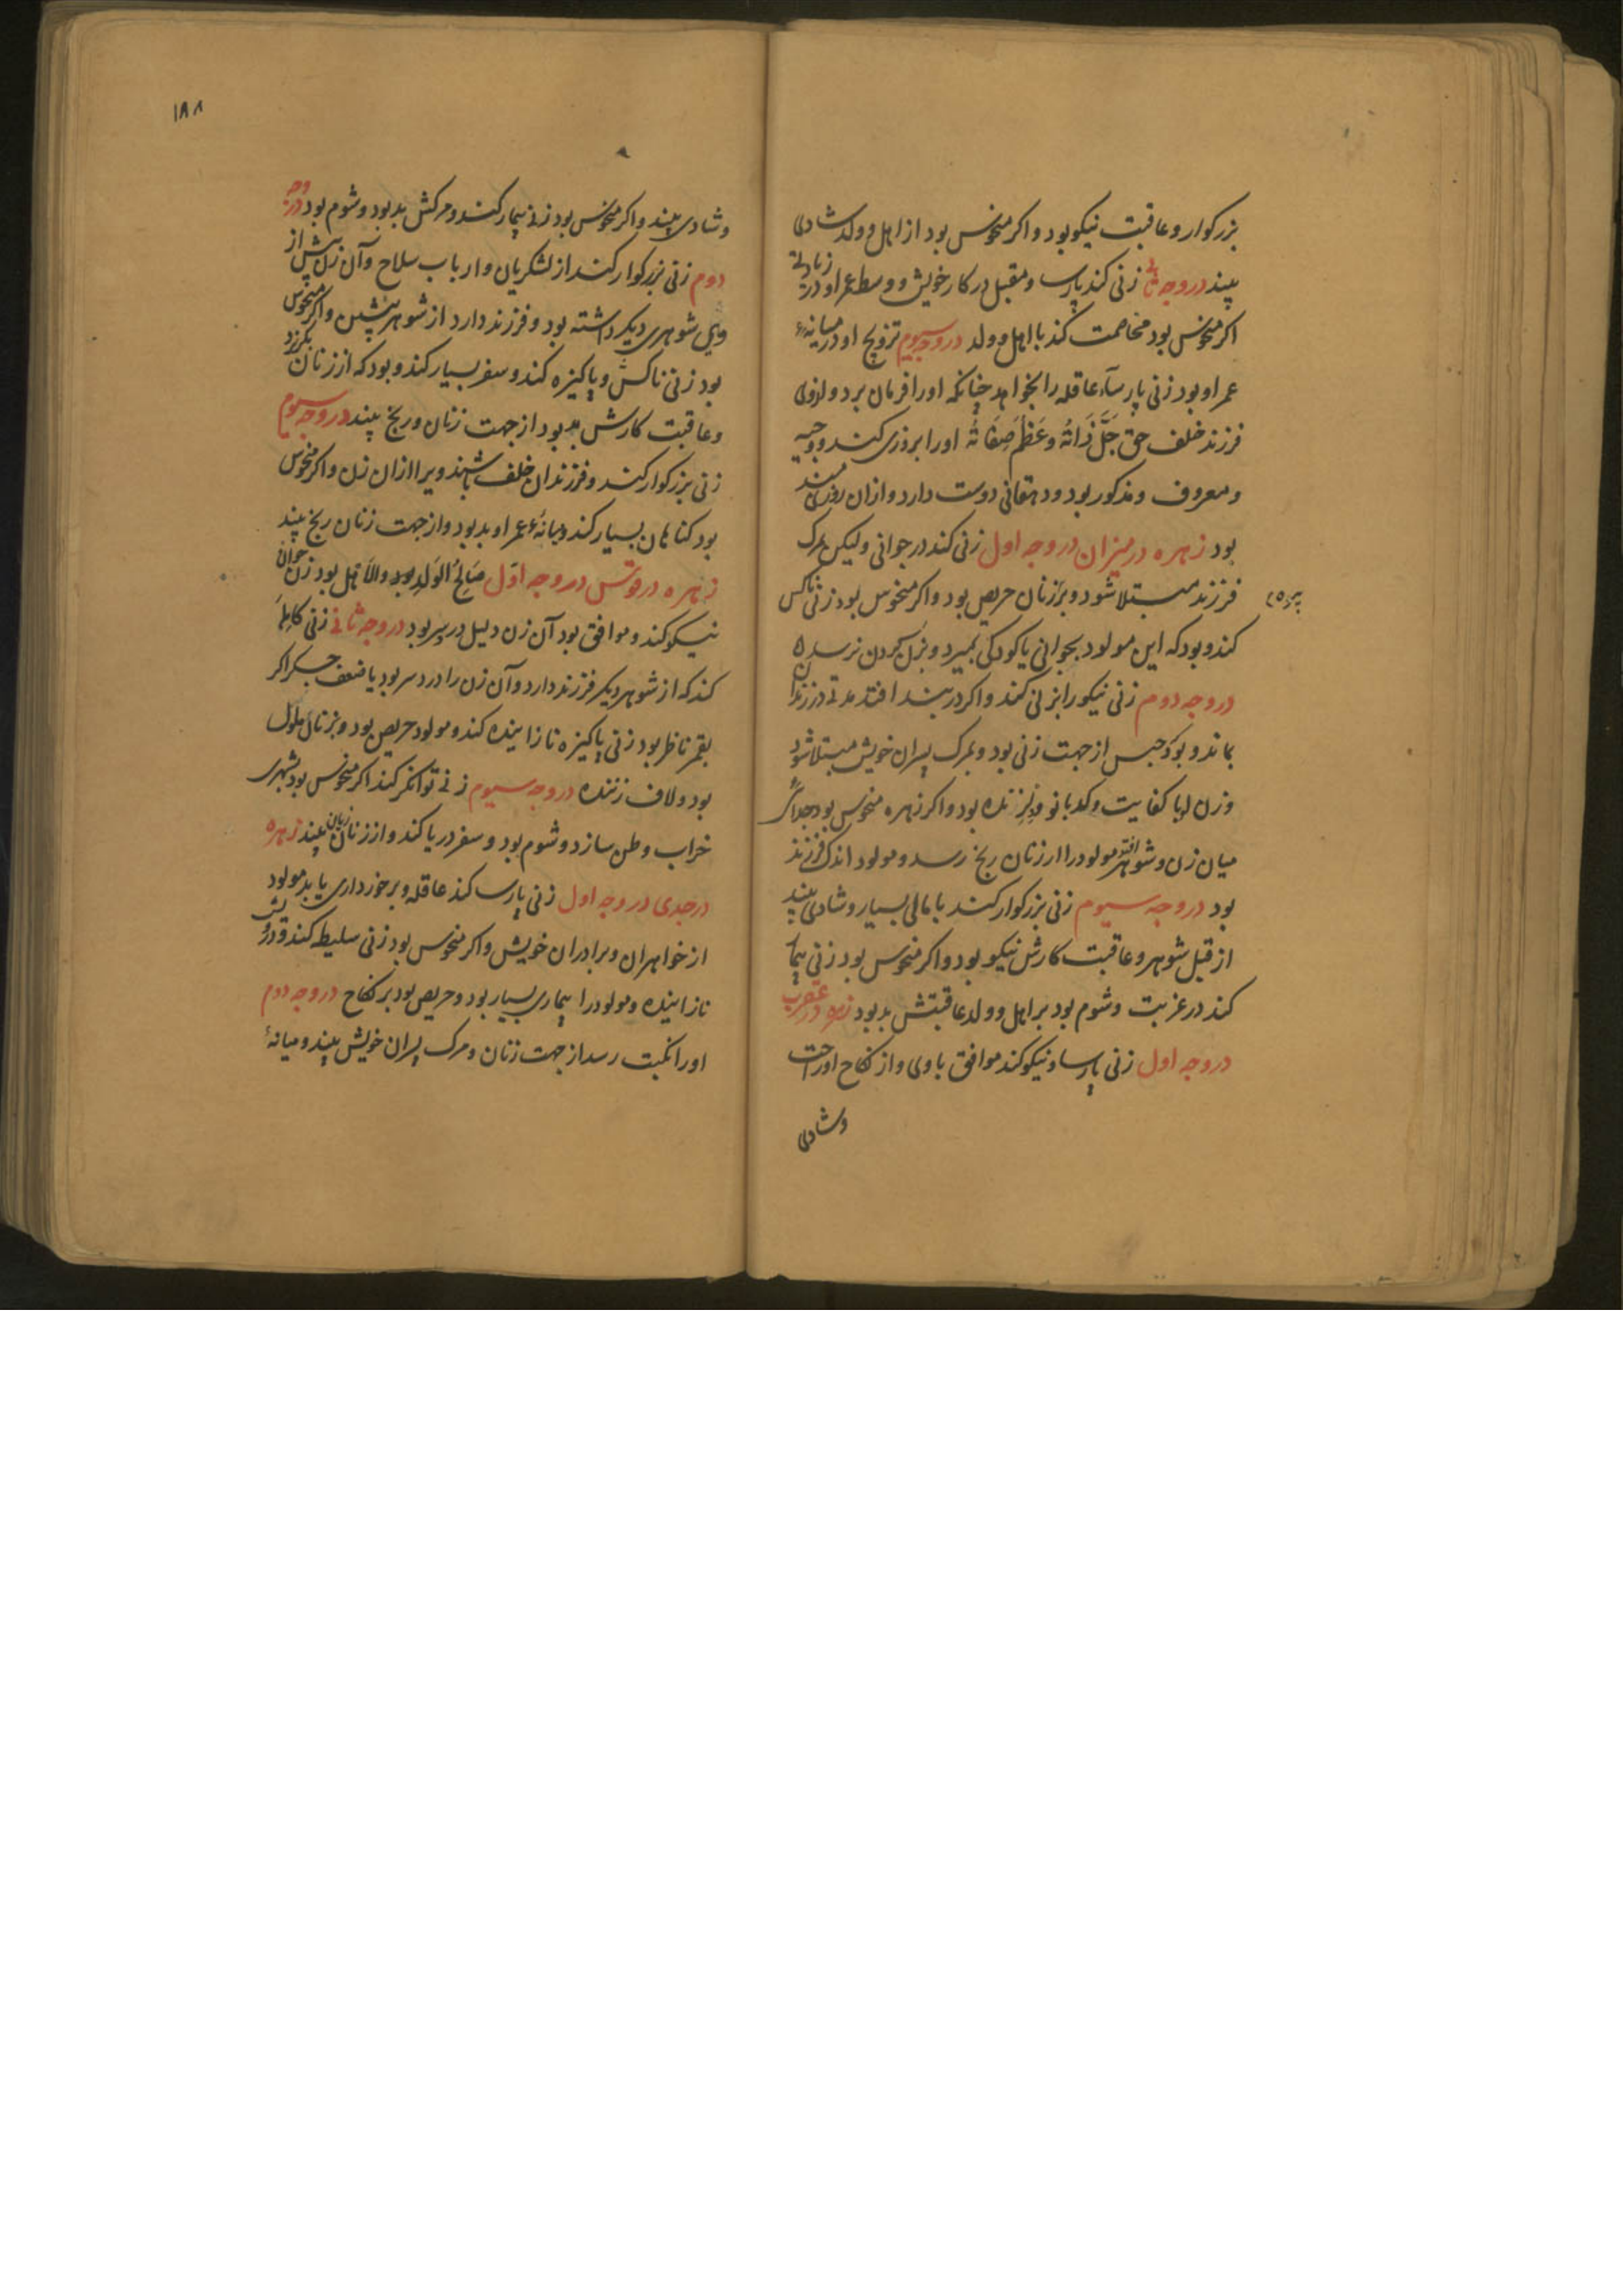 بزرکوار و عاقبت نیکو بود و اکر منحوس بود از اهل و ولد شادی
بیند در وجه ثانی زنی کند پارسا و مقبل در کار خویش و وسط عمر او در زیادتی
اکر منحوس بود مخاصمت کند با اهل و ولد در وجه سیوم تزویج او در میانهٔ
عمر او بود زنی پارسآء عاقله را بخواهد چنانکه او را فرمان برد و از وی
فرزند خلف حق جَلَّ ذَاتُه وعَظُمَ صِفَاتُه او را بروزی کند و وجیه
و معروف و مذکور بود و دهقانی دوست دارد و ازان روزی مند
بود زهره در میزان در وجه اول زنی کند در جوانی ولیکن بمرک
فرزند مبتلا شود و بر زنان حریص بود و اکر منحوس بود زنی ناکس
کند و بود که این مولود بجوانی یا کودکی بمیرد و بزن کردن نرسد
در وجه دوم زنی نیکو را بزنی کند و اکر در بند افتد مدتی در زندان
بماند و بود حبس از جهت زنی بود و بمرک پسران خویش مبتلا شود
و زن او با کفایت و کدبانو بود و اکر زهره منحوس بود جدائی
میان زن و شوهر افتد مولود را از زنان رنج رسد و مولود اندک فرزند
بود در وجه سیوم زنی بزرکوار کند با مالی بسیار و شادی بیند
از قبل شوهر و عاقبت کارش نیکو بود و اکر منحوس بود زنی بیمار
کند در غربت و شوم بود بر اهل و ولد عاقبتش بد بود زهره در عقرب
در وجه اول زنی پارسا و نیکو کند موافق با وی و از نکاح او راحت
و شادی
۱۸۸
و شادی بیند و اکر منحوس بود زنی بیمار کند و مرکش بد بود و شوم بود در وجه
دوم زنی بزرکوار کند از لشکریان و ارباب سلاح و آن زن پیش از
وی شوهری دیکر داشته بود و فرزند دارد از شوهر پیشین و اکر منحوس
بود زنی ناکس و پاکیزه کند و سفر بسیار کند و بود که از زنان بکریزد
و عاقبت کارش بد بود از جهت زنان و رنج بیند در وجه سیوم
زنی بزرکوار کند و فرزندان خلف باشند ویرا ازان زن و اکر منحوس
بود کناهان بسیار کند و میانهٔ عمر او بد بود و از جهت زنان رنج بیند
زهره در قوس در وجه اوّل صَالِحُ الوَلَد بود و الاهل بود زن جوان
نیکو کند و موافق بود آن زن دلیل در سر بود در وجه ثانی زنی کامله
کند که از شوهر دیکر فرزند دارد و آن زن را درد سر بود یا ضعف جکر اکر
بقمر ناظر بود زنی پاکیزه نازاینده کند و مولود حریص بود و بزنان ملول
بود و لاف زننده در وجه سیوم زنی توانکر کند اکر منحوس بود بشهری
خراب وطن سازد و شوم بود و سفر دریا کند و از زنان زیان بیند زهره
در جدی در وجه اول زنی پارسا کند عاقله و برخورداری یابد مولود
از خواهران و برادران خویش و اکر منحوس بود زنی سلیطه کند و درویش
نازاینده و مولود را بیماری بسیار بود و حریص بود بر نکاح در وجه دوم
او را نکبت رسد از جهت زنان و مرک پسران خویش بیند و میانهٔ